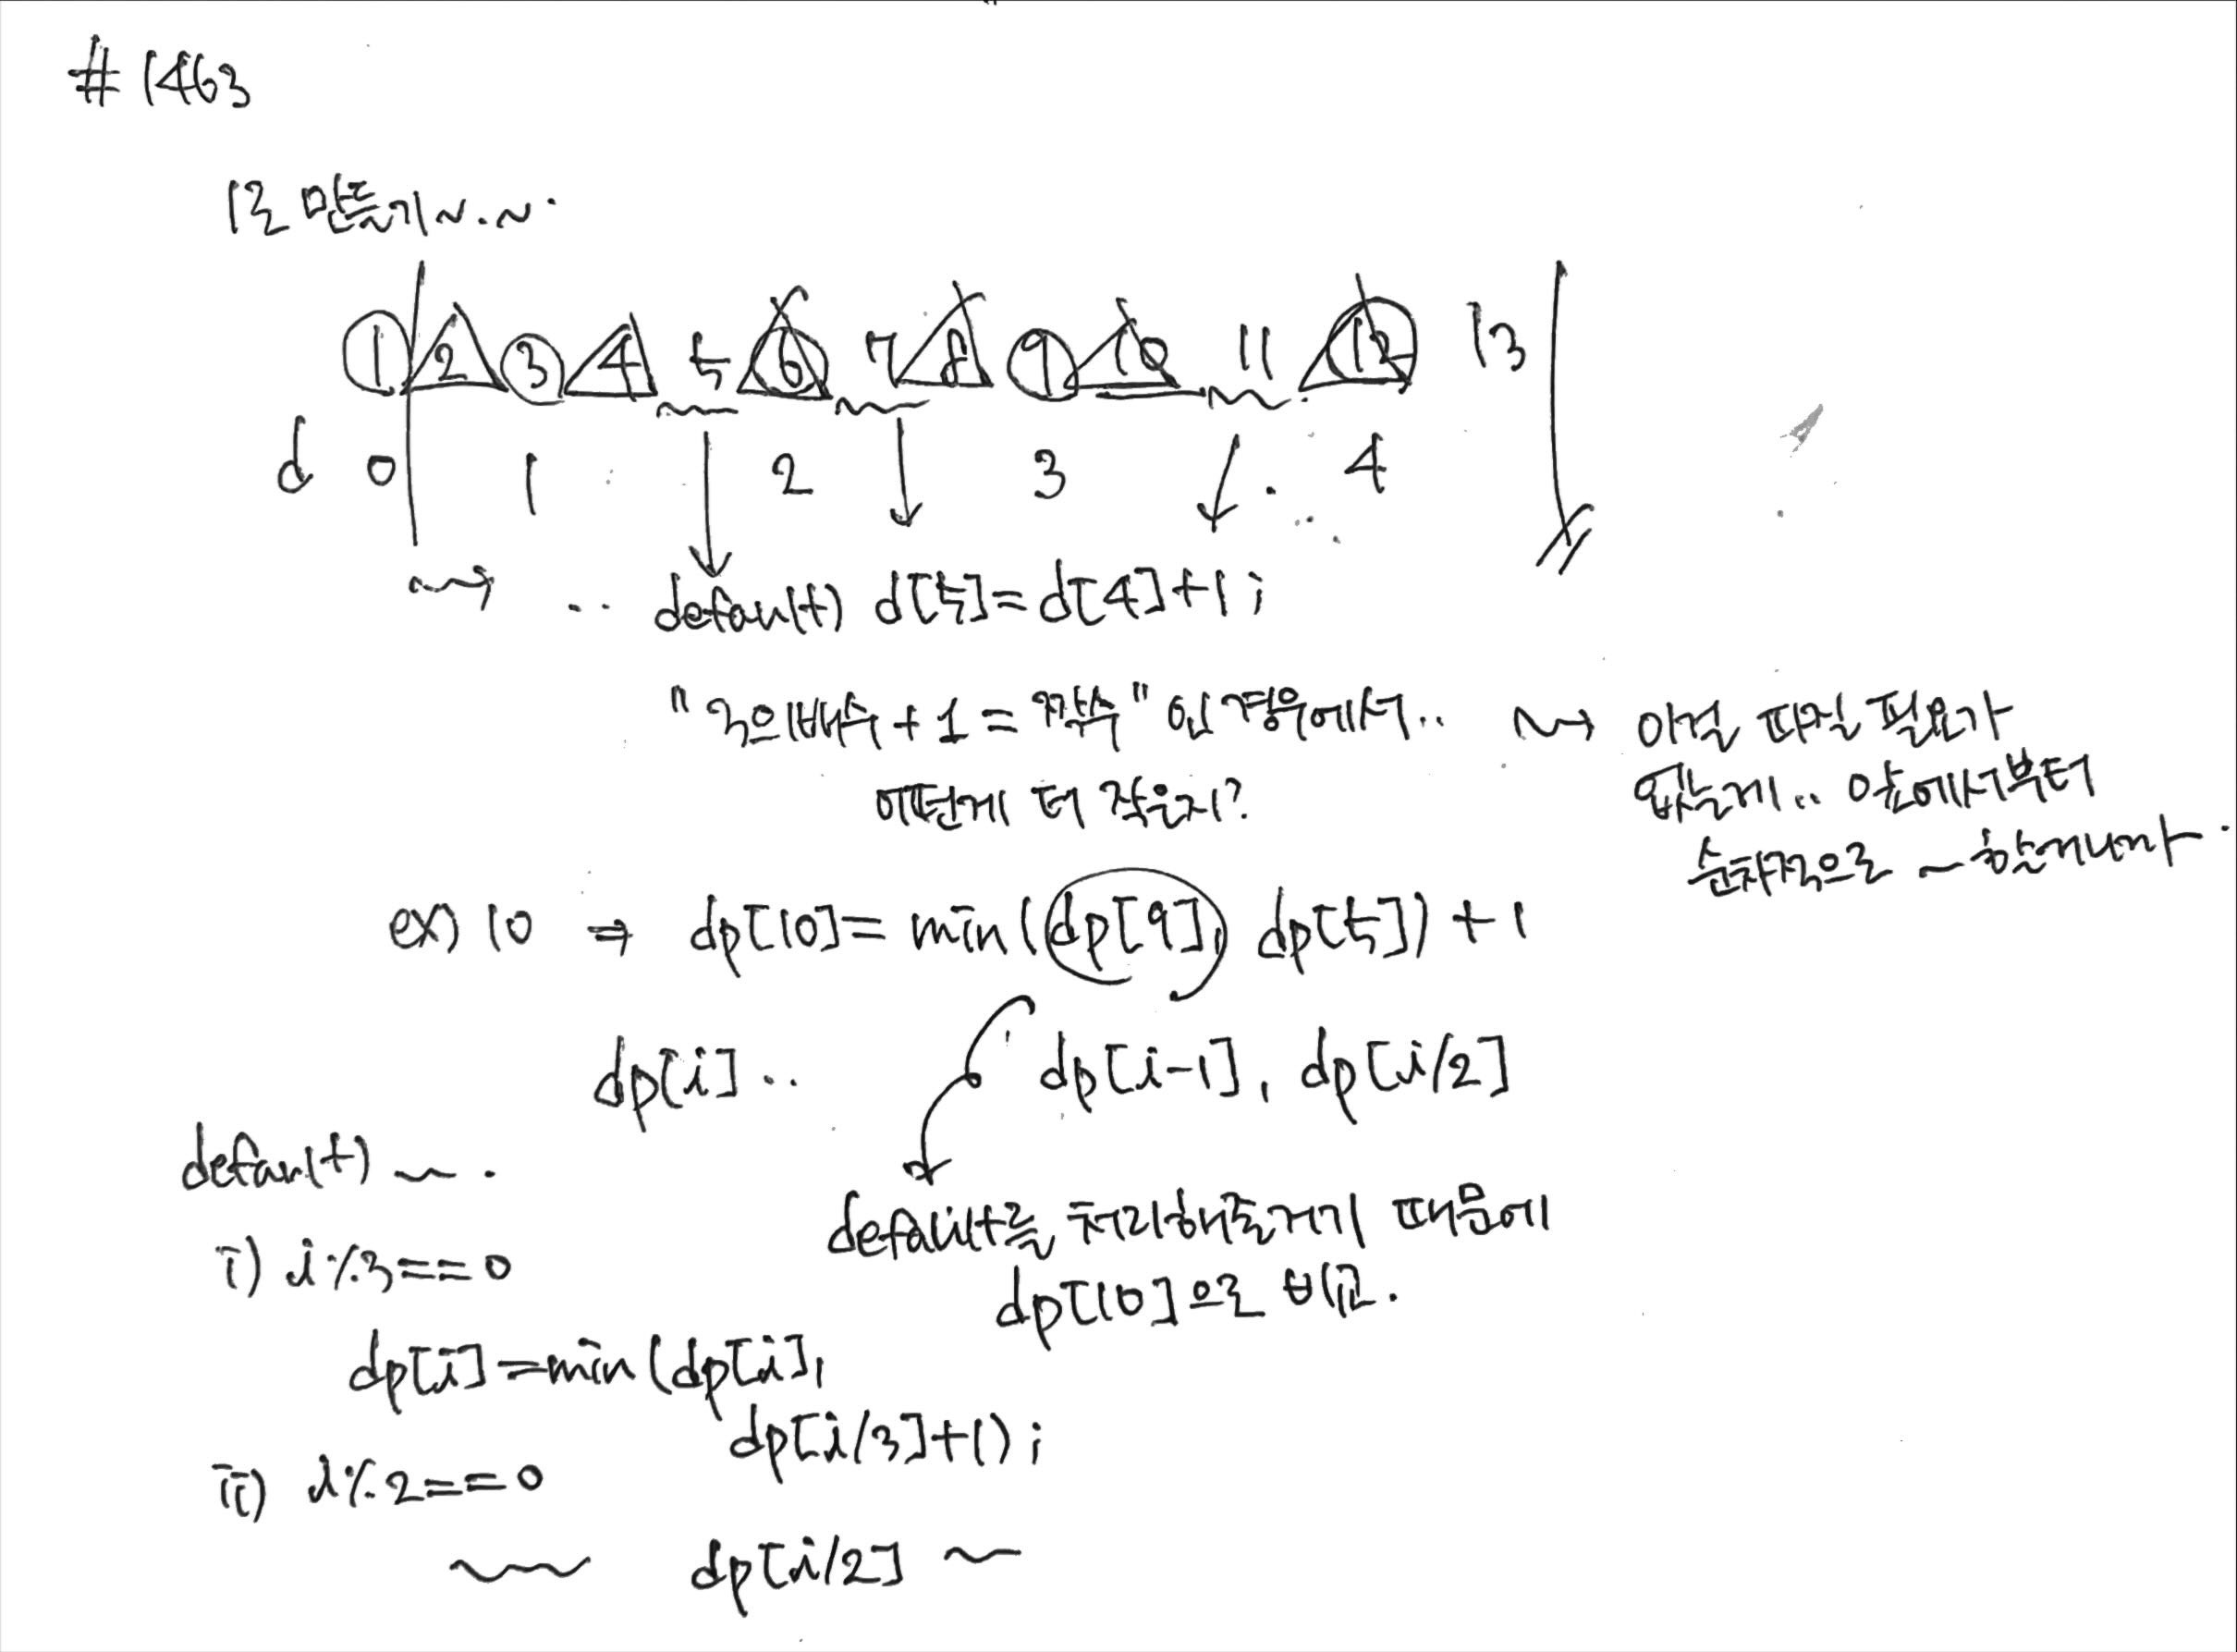 #1463
1로 만들기~.~.
1 2 3 4 5 6 7 8 9 10 11 12 13
d 0 1 2 3 4
.. default) d[5]=d[4]+1;
"3의배수+1=짝수"인 경우에서..
어떤게 더 작은지?
~> 이걸 따질 필요가
없는게.. 앞에서부터
순차적으로 ~할거니까.
ex) 10 ⇒ dp[10]=min(dp[9], dp[5])+1
dp[i].. dp[i-1], dp[i/2]
default를 처리해줄거기 때문에
dp[10]으로 비교.
default) ~.
i) i%3==0
dp[i]=min(dp[i],
dp[i/3]+1);
ii) i%2==0
~ dp[i/2] ~